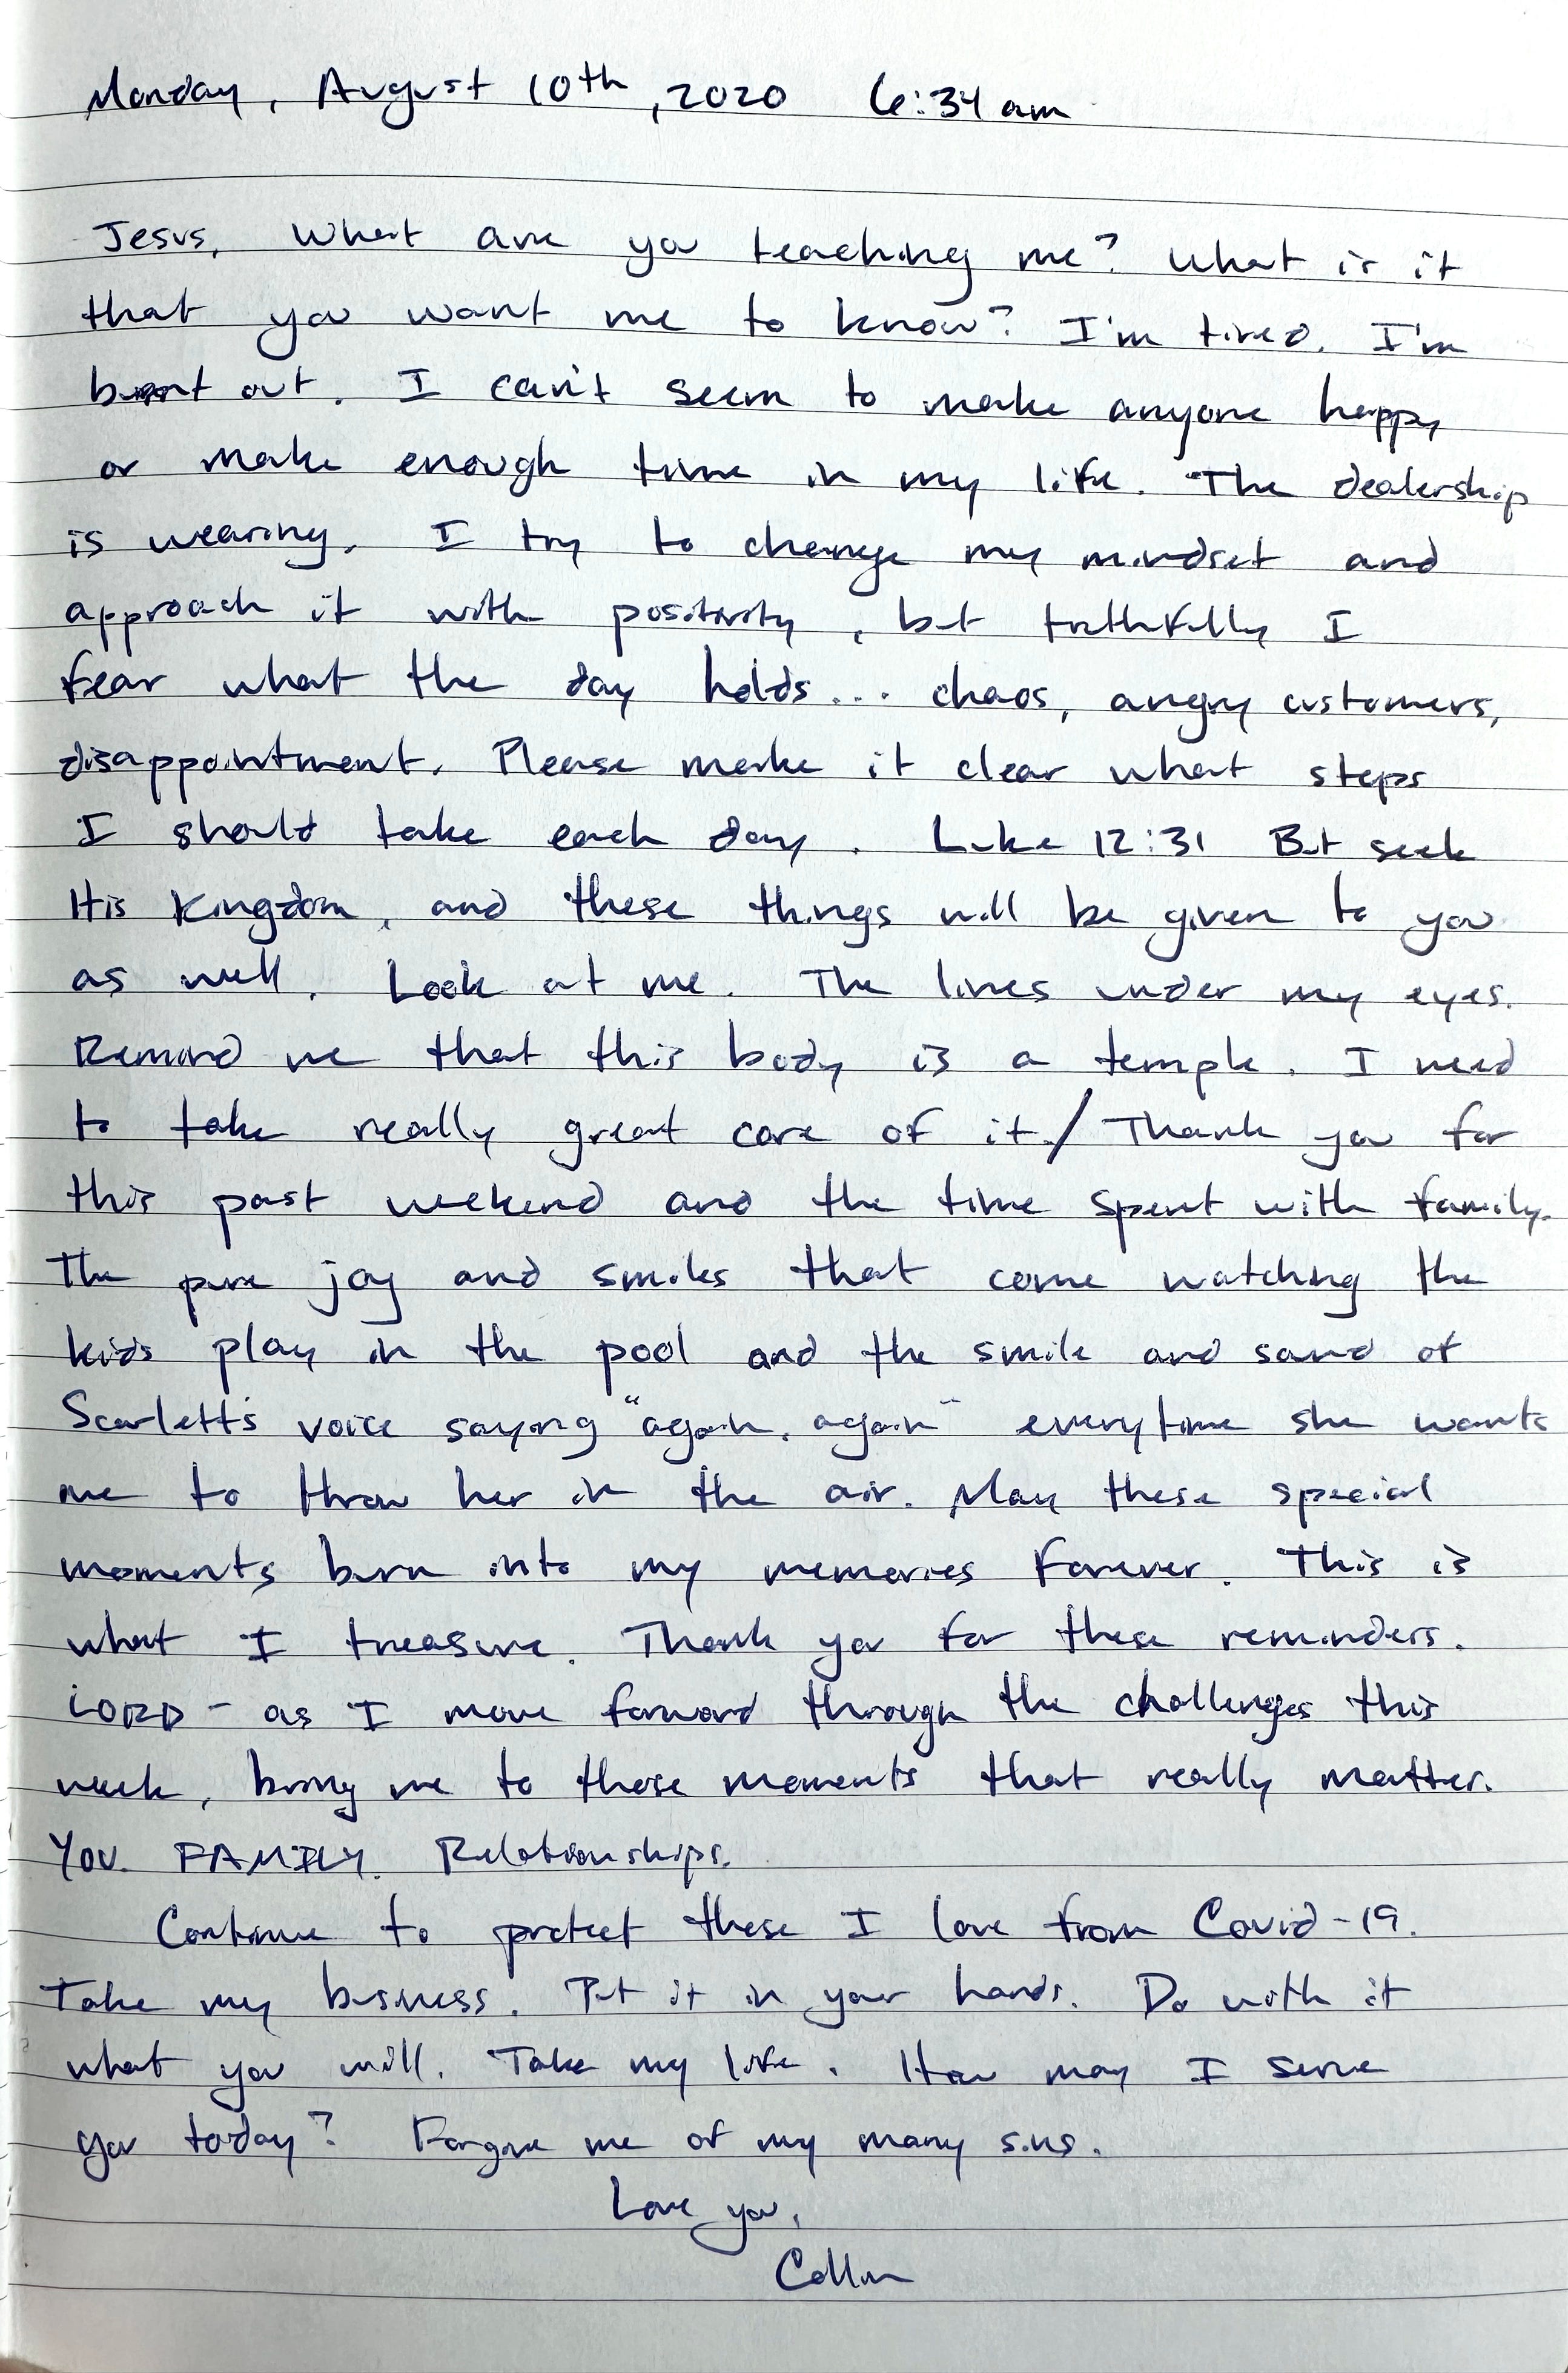 Monday, August 10th, 2020 6:34 am
Jesus, What are you teaching me? What is it
that you want me to know? I'm tired. I'm
burnt out. I can't seem to make anyone happy
or make enough time in my life. The dealership
is wearing. I try to change my mindset and
approach it with positivity, but truthfully I
fear what the day holds... chaos, angry customers,
disappointment. Please make it clear what steps
I should take each day. Luke 12:31 But seek
His Kingdom, and these things will be given to you
as well. Look at me. The lines under my eyes.
Remind me that this body is a temple. I need
to take really great care of it./ Thank you for
this past weekend and the time spent with family.
The pure joy and smiles that come watching the
kids play in the pool and the smile and sound of
Scarlett's voice saying "again, again" everytime she wants
me to throw her in the air. May these special
moments burn into my memories forever. This is
what I treasure. Thank you for these reminders.
LORD - as I move forward through the challenges this
week, bring me to those moments that really matter.
You. FAMILY. Relationships.
Continue to protect those I love from Covid-19.
Take my business. Put it in your hands. Do with it
what you will. Take my life. How may I serve
you today? Forgive me of my many sins.
Love you,
Collin